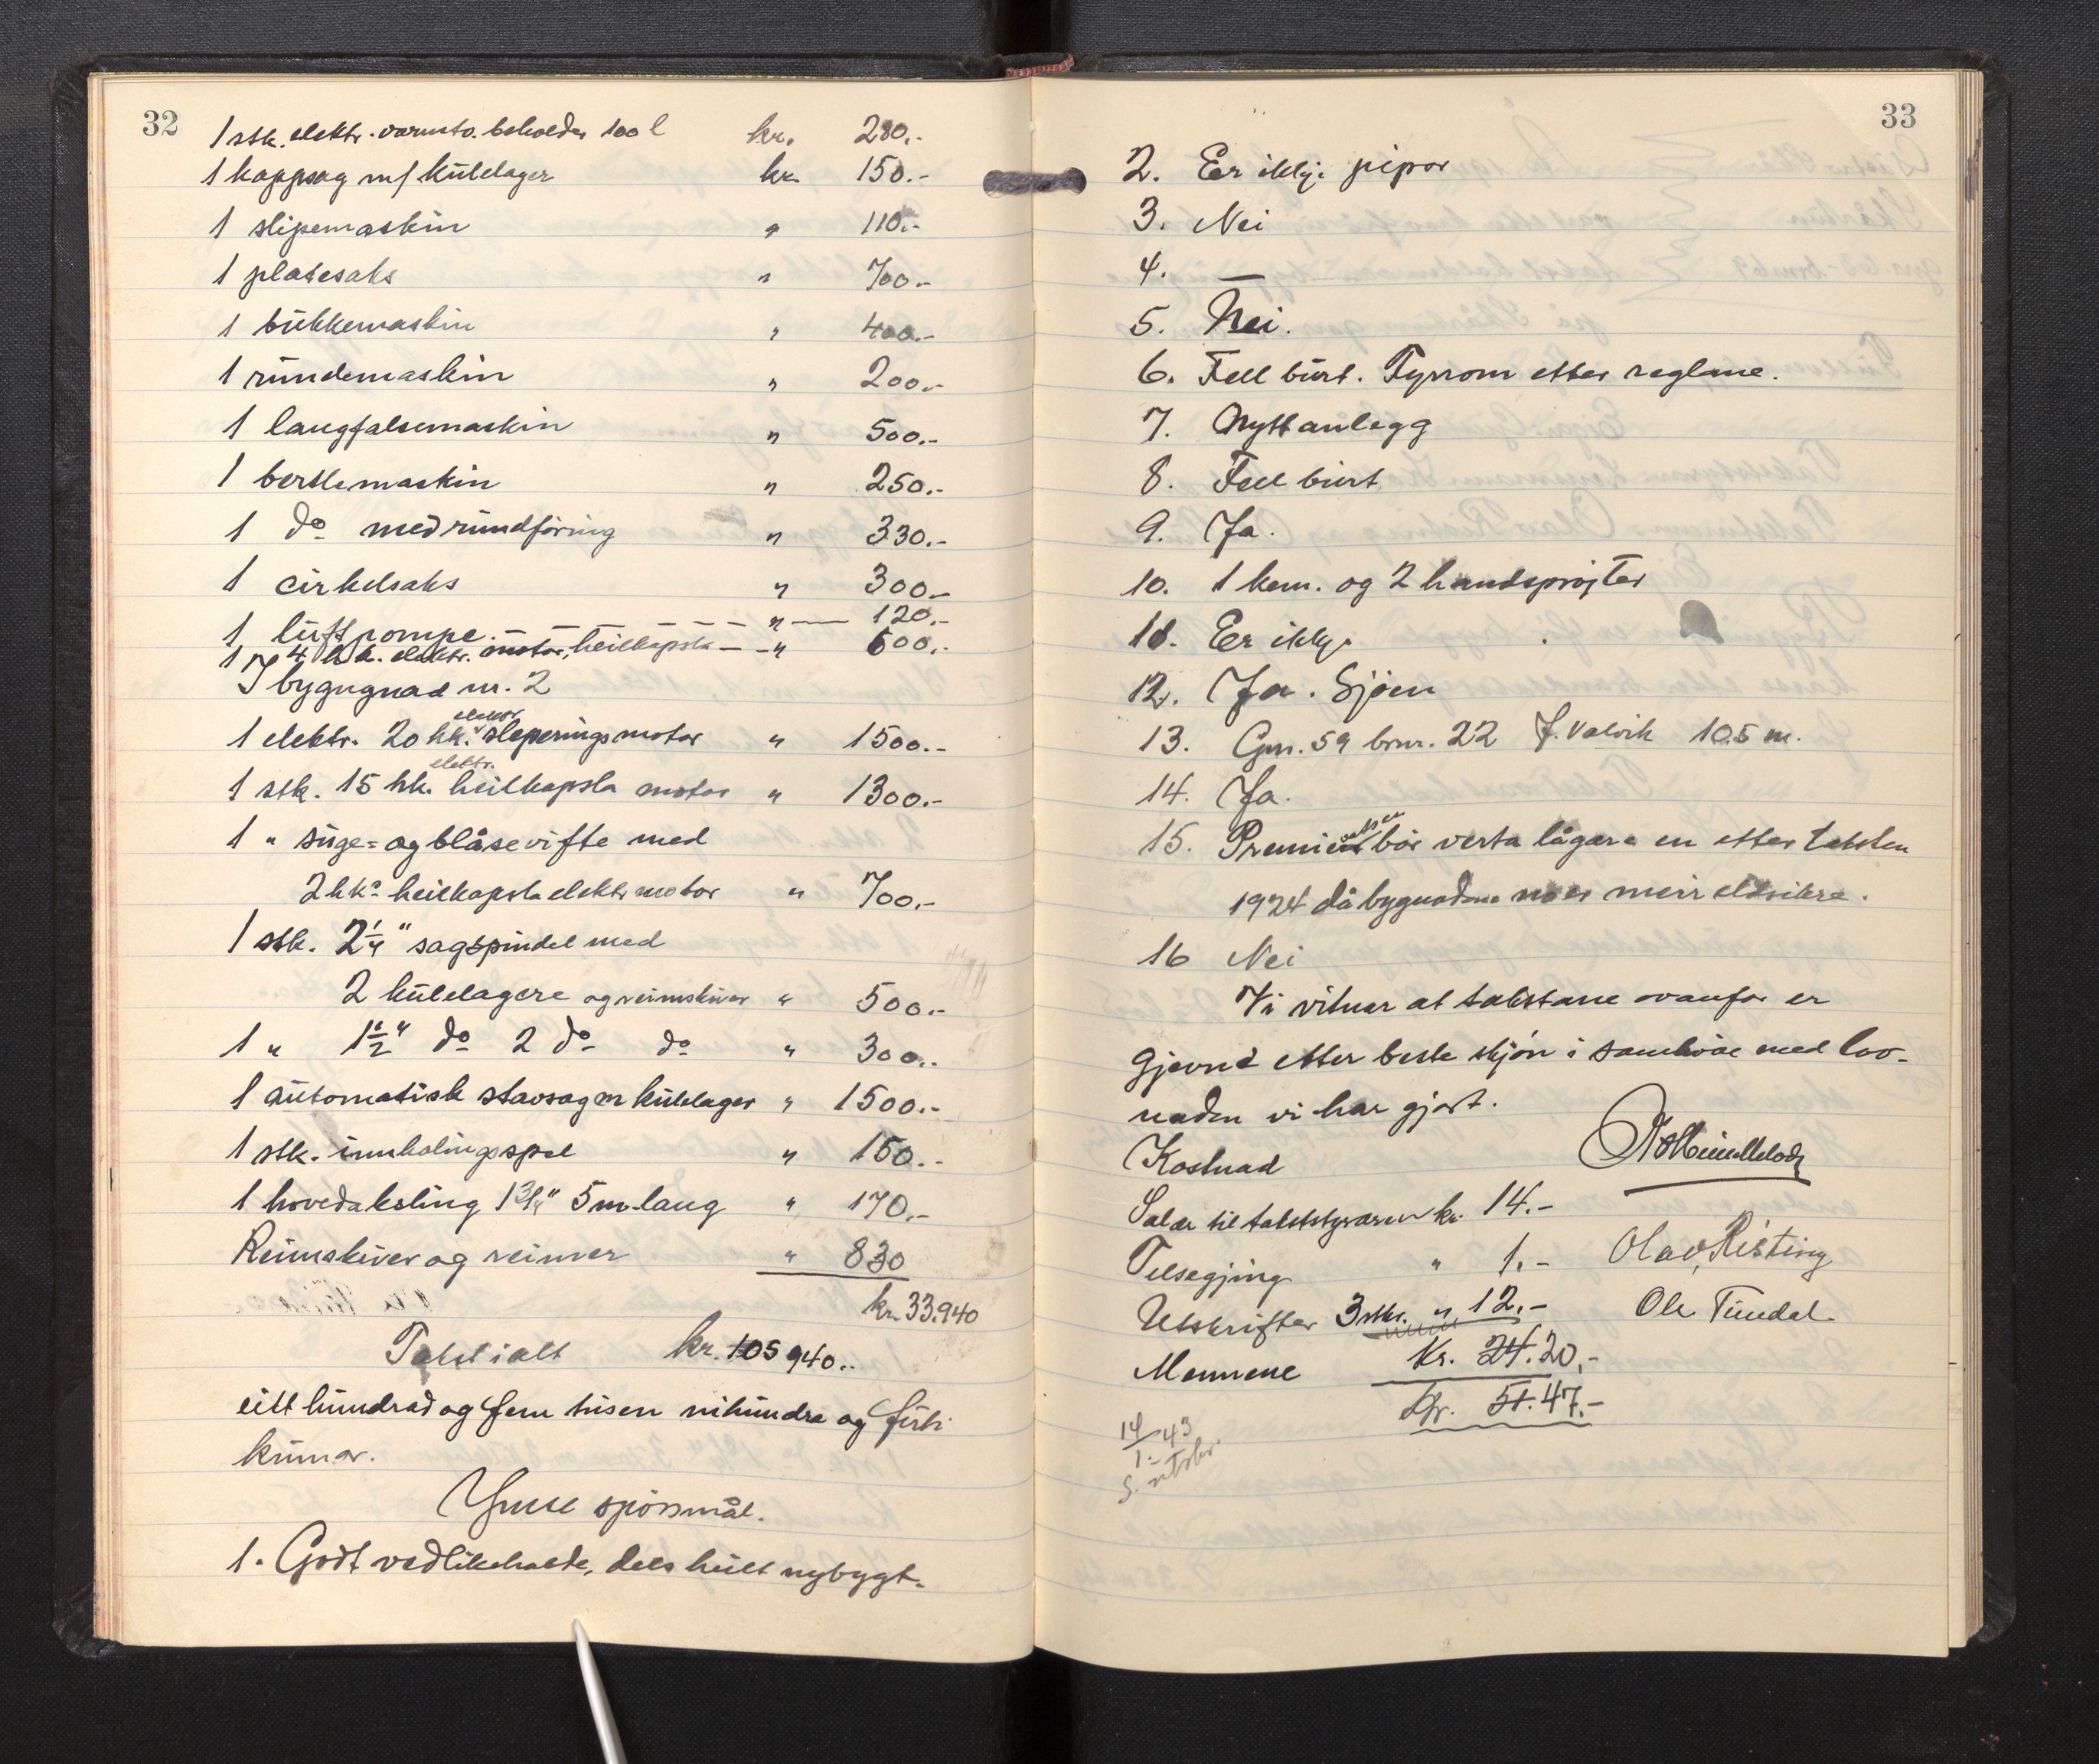 32
1 stk. elektr. varmtv. beholder 100 l kr. 280.-
1 kappsag m/ kúlelager kr. 150.-
1 slipemaskin " 110.-
1 platesaks " 700.-
1 búkkemaskin " 400.-
1 rúndemaskin " 200.-
1 langfalsemaskin " 500.-
1 bertlemaskin " 250.-
1 do med rúndföring " 330.-
1 cirkelsaks " 300.-
1 lúftpompe. — — — — — " — 120.-
1 4 hk. elektr. motor, heilkapsla — " 600.-
I bygngnad nr. 2
1 elektr. 20 hk. sleperingsmotor " 1500.-
1 stk. 15 hk. elektr. heilkapsla motor " 1300.-
1 " súge= og blåsevifte med
2 hk. heilkapsla elektr motor " 700.-
1 stk. 2 1/4 " sagspindel med
2 kúlelagere og reimskiver " 500.-
1 " 1 1/2 " do 2 do do " 300.-
1 aútomatisk stavsag m kúlelager " 1500.-
1 stk. innhalingsspel " 150.-
1 hovedaksling 1 3/4" 5 m. lang " 170.-
Reimskiver og reimer " 830
kr. 33.940
Takst ialt kr. 105 940.-
eitt húndrad og fem túsen nihúndra og fúrti
krúnor.
Ymse spörsmål.
1. Godt vedlikehalde, dels heilt nybygt.
33
2. Er ikkje pipor
3. Nei
4. —
5. Nei.
6. Fell búrt. Fyrrom etter reglane.
7. Nytt anlegg
8. Fell búrt
9. Ja.
10. 1 kem. og 2 handsprøjter
11. Er ikkje
12. Ja. Sjöen
13. Gnr. 59 brnr. 22 J. Valvik 10.5 m.
14. Ja.
15. Premien bör verta lågare en etter taksten
1924 då bygnadene no er meir eldsikre.
16 Nei
Vi vitnar at takstane ovanfor er
gjevne etter beste skjön i samhöve med lov-
naden vi har gjort.
Kostnad
Salær til takststyraren kr. 14.-
Tilsegjing " 1.- Olav Risting
Utskrifter 3 stk. " 12.- Ole Tundal
Mennene Kr. 24. 20,-
Kr. 51. 47.-
14/1-43